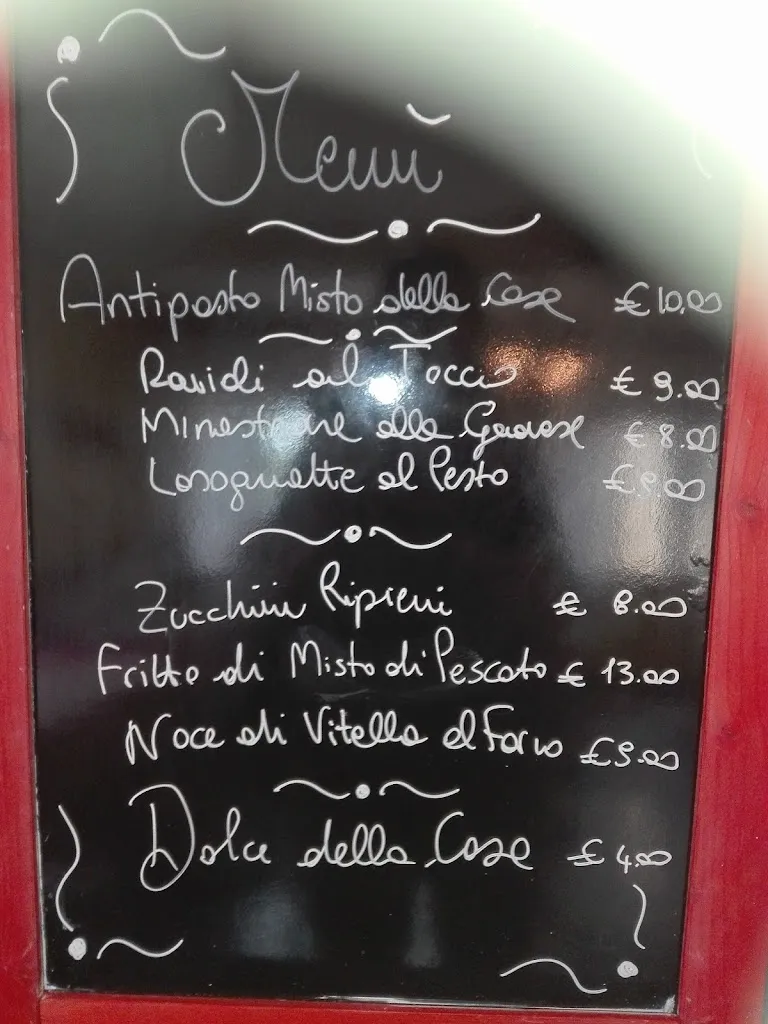 Menù
Antipasto Misto della Casa € 10.00
Ravioli al Tocco € 9.00
Minestrone alla Genovese € 8.00
Lasagnette al Pesto
Zucchini Ripieni € 8.00
Fritto di Misto di Pescato € 13.00
Noce di Vitello al Forno € 9.00
Dolce della Casa € 4.00